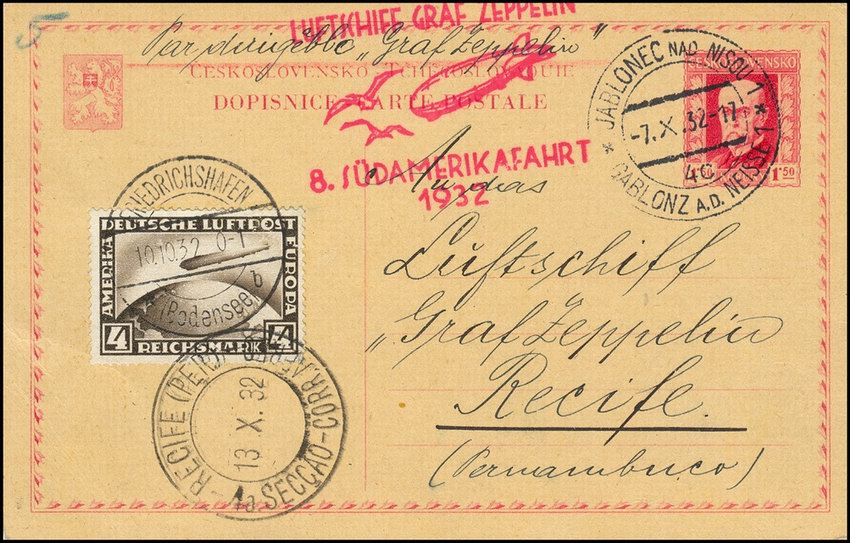 LUFTSCHIFF GRAF ZEPPELIN
Par dirigeable „Graf Zeppelin"
ČESKOSLOVENSKO-TCHÉCOSLOVAQUIE
DOPISNICE-CARTE POSTALE
8. SÜDAMERIKAFAHRT
1932
JABLONEC NAD NISOU 1
-7.X.32-17
4c
GABLONZ A.D. NEISSE 1
ČESKOSLOVENSKO
1·50
An das
Luftschiff
„Graf Zeppelin
Recife.
(Pernambuco)
FRIEDRICHSHAFEN
10.10.32
b
(Bodensee)
DEUTSCHE LUFTPOST
AMERIKA
EUROPA
4
4
REICHSMARK
RECIFE (PERN.)
13 X. 32
1a SECCAO-CORR. AEREO